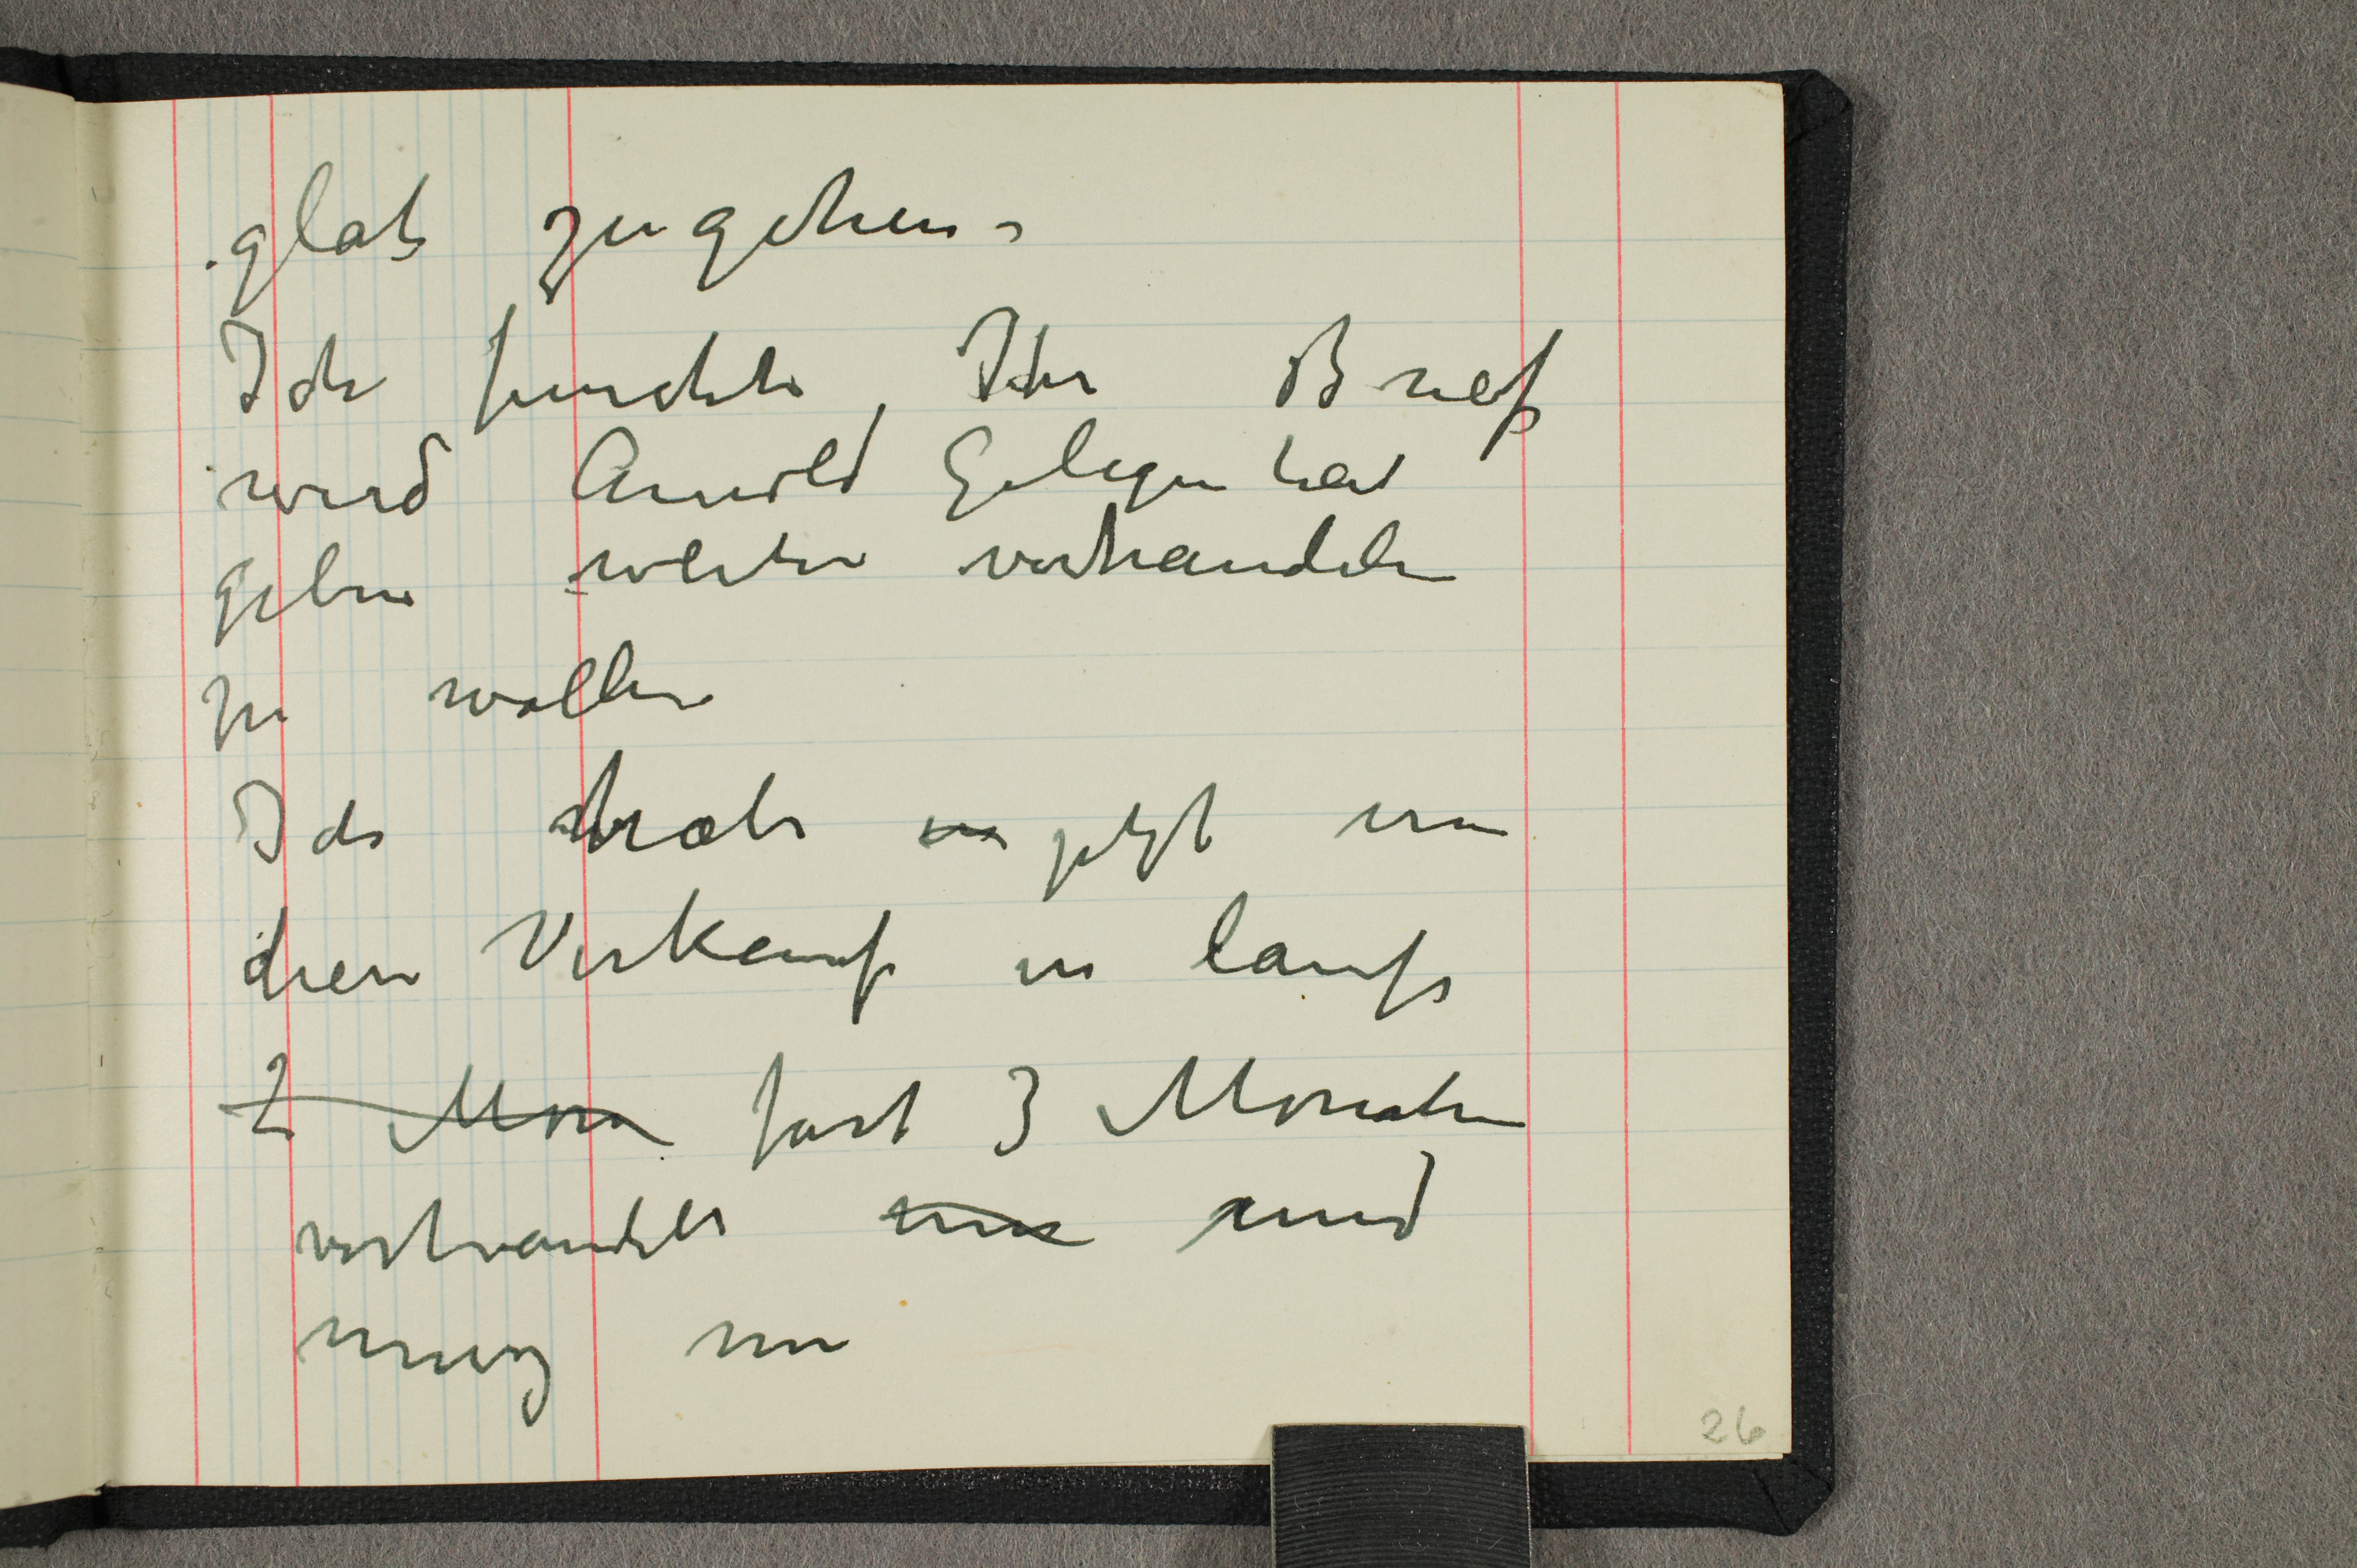 glatt zugehen.
Ich furchte, Ihr Brief
wird Arnold Gelegenheit
geben weiter verhandeln
zu wollen
Ich habe jetzt um
den Verkauf in laufe
2 Mon fast 3 Monaten
verhandelt und
26